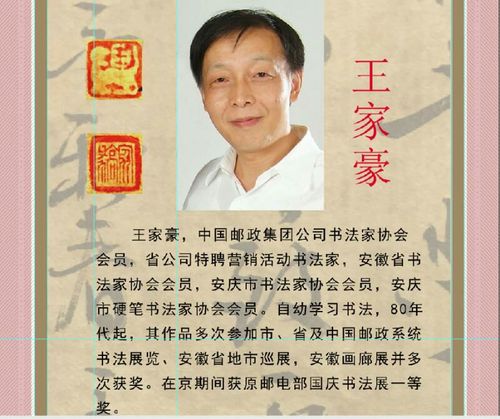 王家豪
王家豪，中国邮政集团公司书法家协会
会员，省公司特聘营销活动书法家，安徽省书
法家协会会员，安庆市书法家协会会员，安庆
市硬笔书法家协会会员。自幼学习书法，80年
代起，其作品多次参加市、省及中国邮政系统
书法展览、安徽省地市巡展，安徽画廊展并多
次获奖。在京期间获原邮电部国庆书法展一等
奖。